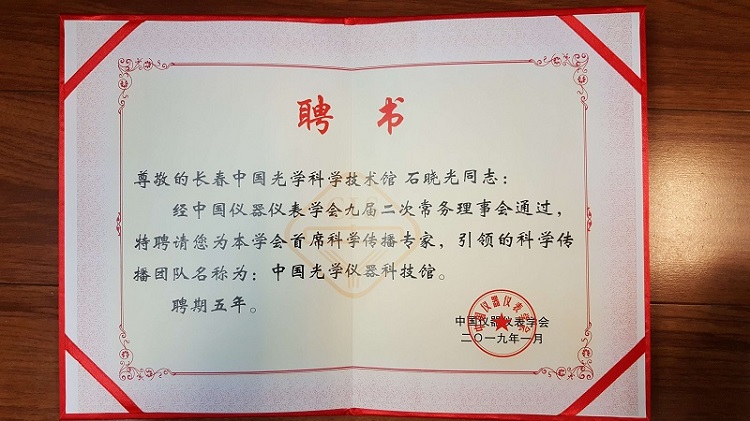 聘 书
尊敬的长春中国光学科学技术馆 石晓光同志：
经中国仪器仪表学会九届二次常务理事会通过，
特聘请您为本学会首席科学传播专家，引领的科学传
播团队名称为：中国光学仪器科技馆。
聘期五年。
中国仪器仪表学会
二〇一九年一月
中国仪器仪表学会